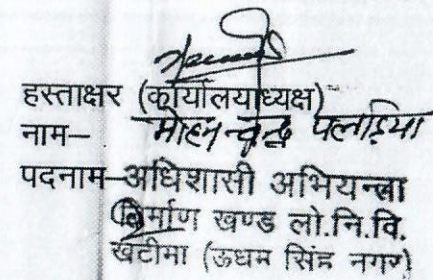 हस्ताक्षर (कार्यालयाध्यक्ष)
नाम– मोहन चन्द्र पलड़िया
पदनाम–अधिशासी अभियन्ता
निर्माण खण्ड लो.नि.वि.
खटीमा (ऊधम सिंह नगर)